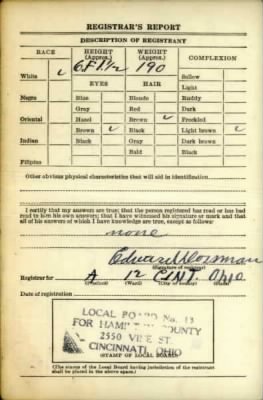 REGISTRAR'S REPORT
DESCRIPTION OF REGISTRANT
RACE HEIGHT (Approx.) WEIGHT (Approx.) COMPLEXION
6 F 1 1/2 190
White ✓ Sallow
EYES HAIR Light
Negro Blue Blonde Ruddy
Gray Red Dark
Oriental Hazel Brown ✓ Freckled
Brown ✓ Black Light brown ✓
Indian Black Gray Dark brown
Bald Black
Filipino
Other obvious physical characteristics that will aid in identification
I certify that my answers are true; that the person registered has read or has had
read to him his own answers; that I have witnessed his signature or mark and that
all of his answers of which I have knowledge are true, except as follows:
none
Edward
(Signature of registrar)
Registrar for A 12 CINT. Ohio
(Precinct) (Ward) (City or county) (State)
Date of registration
LOCAL BOARD No. 13
FOR HAMILTON COUNTY
2550 VINE ST.
CINCINNATI, OHIO
(STAMP OF LOCAL BOARD)
(The stamp of the Local Board having jurisdiction of the registrant
shall be placed in the above space.)